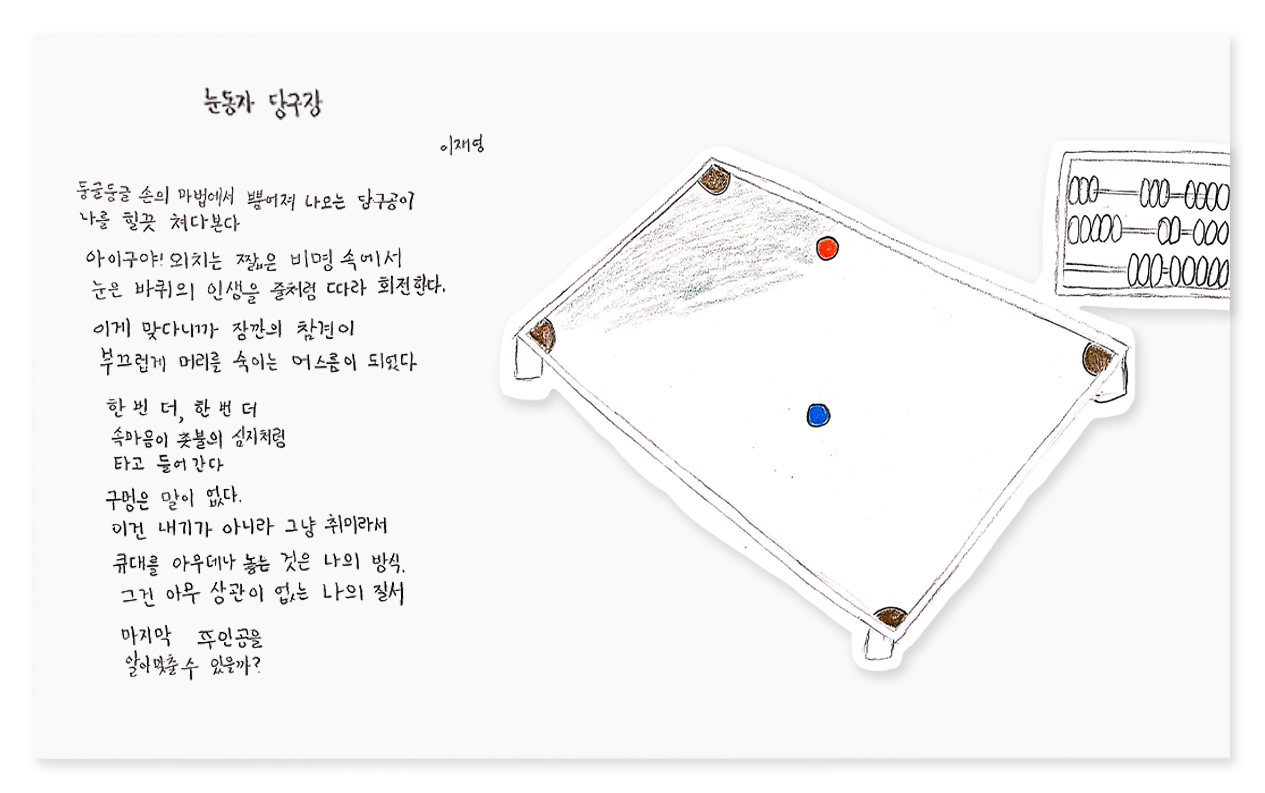 눈동자 당구장
이재영
둥글둥글 손의 마법에서 뿜어져 나오는 당구공이
나를 힐끗 쳐다본다
아이구야! 외치는 짧은 비명 속에서
눈은 바퀴의 인생을 줄처럼 따라 회전한다.
이게 맞다니까 장깐의 참견이
부끄럽게 머리를 숙이는 어스름이 되었다
한 번 더, 한 번 더
속마음이 촛불의 심지처럼
타고 들어간다
구멍은 말이 없다.
이건 내기가 아니라 그냥 취미라서
큐대를 아무데나 놓는 것은 나의 방식.
그건 아무 상관이 없는 나의 질서
마지막 주인공을
알아맞출 수 있을까?